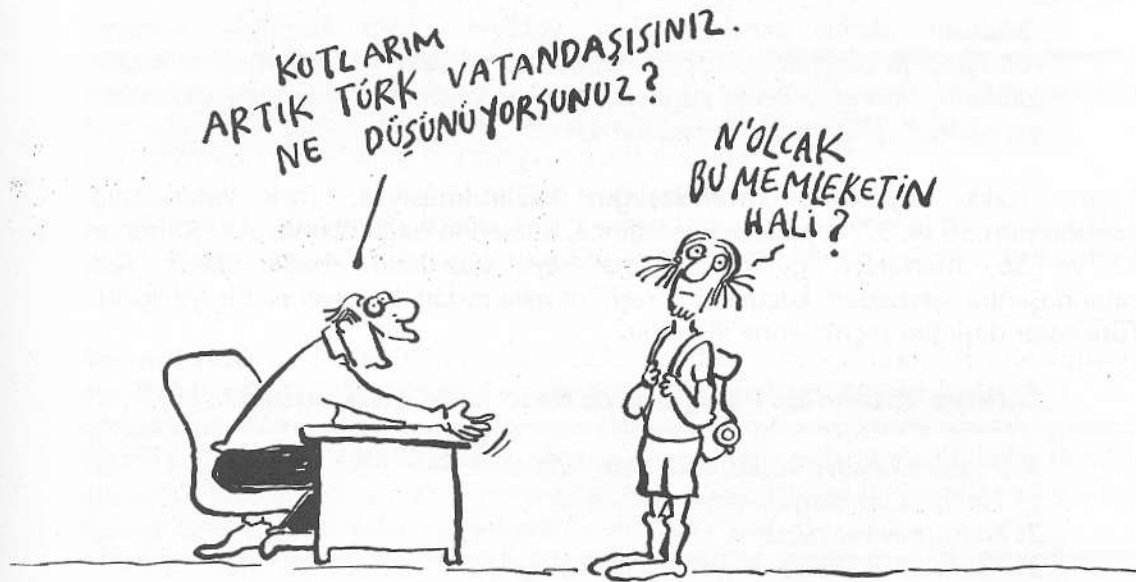 KUTLARIM
ARTIK TÜRK VATANDAŞISINIZ.
NE DÜŞÜNÜYORSUNUZ?
N'OLCAK
BU MEMLEKETİN
HALİ?